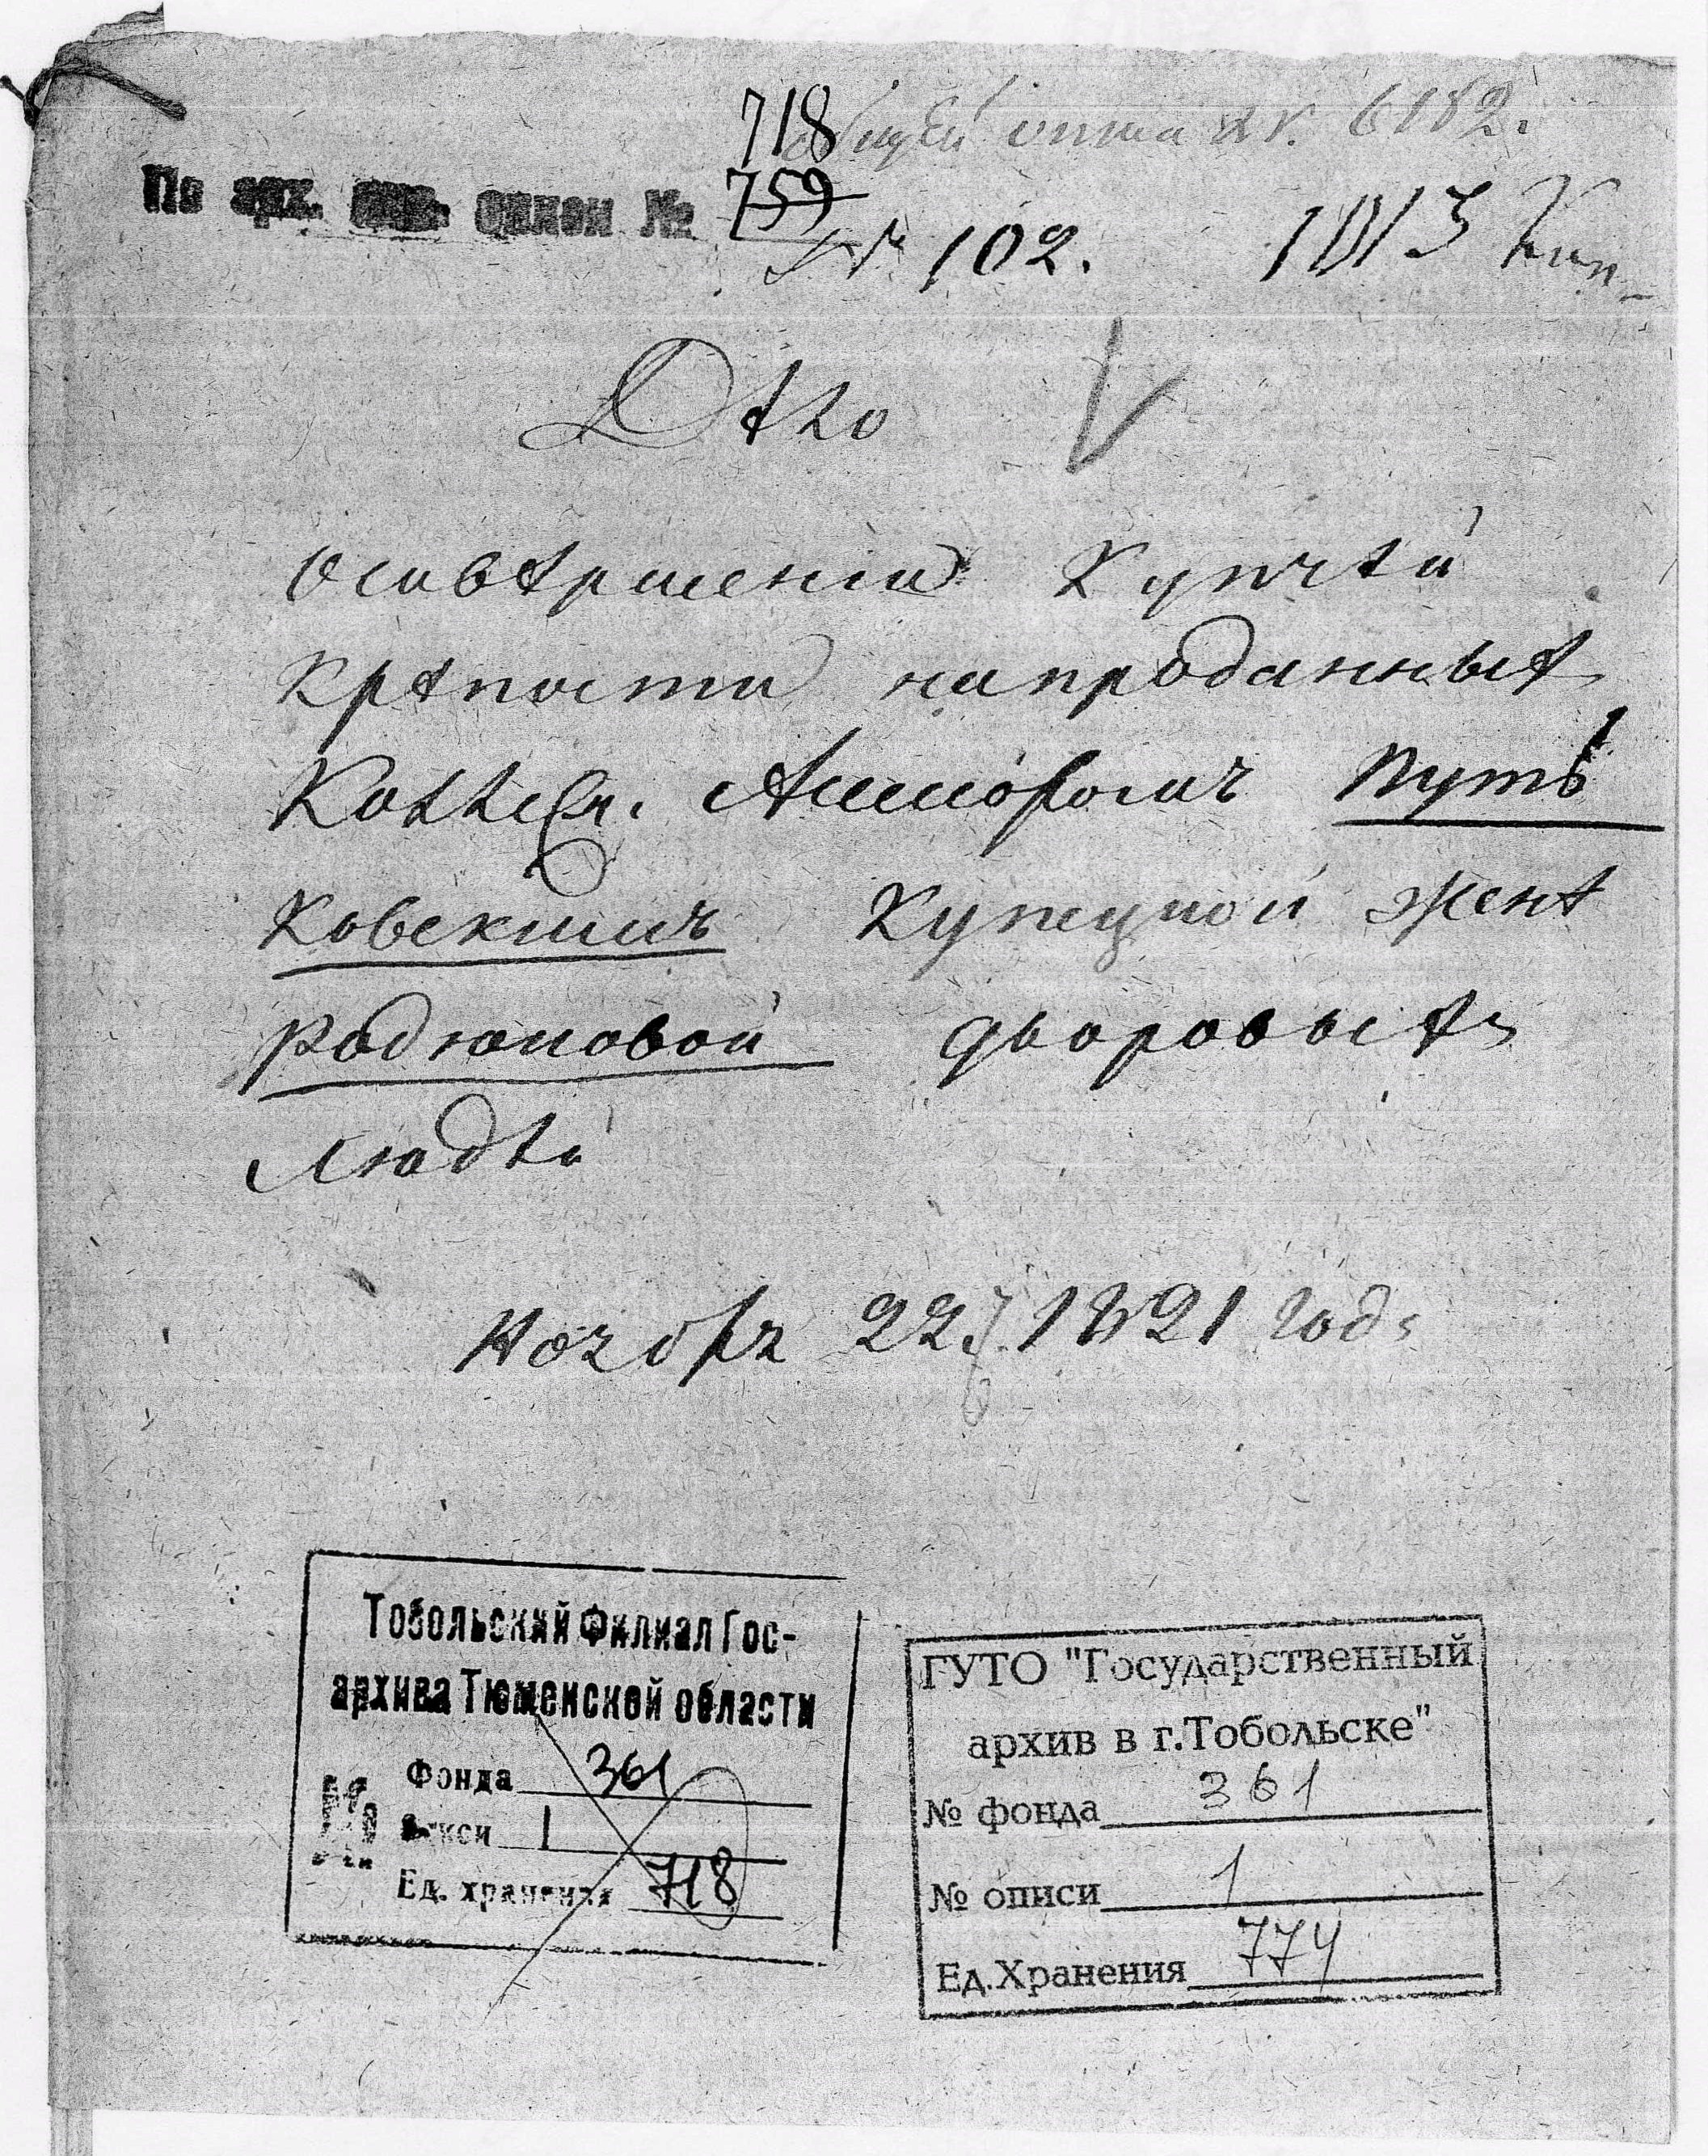 718
общей описи № 6182.
По арх. описи №
759
№ 102.
Дѣло
V
осовѣршении Купчей
крѣпости напроданныхъ
Коллеж. Ассесоромъ Путь
Ковскимъ Купецкой женѣ
Родюковой дворовыхъ
людѣй
Ноября 22. 1821 года
Тобольский Филиал Гос-
архива Тюменской области
№
Фонда 361
описи 1
Ед. хранения 718
ГУТО "Государственный
архив в г.Тобольске"
№ фонда 361
№ описи 1
Ед.Хранения 774